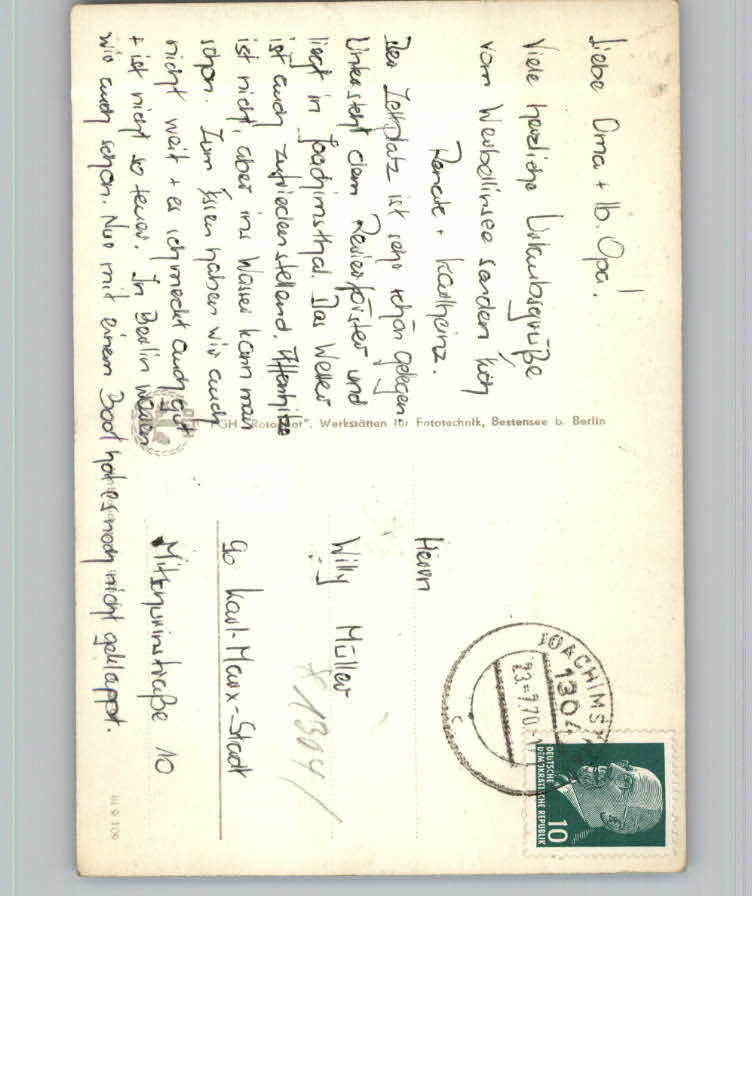 Liebe Oma + lb. Opa!
Viele herzliche Urlaubsgrüße
vom Werbellinsee senden Euch
Renate + Karlheinz.
Der Zeltplatz ist sehr schön gelegen
Untersteht dem Revierförster und
liegt in Joachimsthal. Das Wetter
ist auch zufriedenstellend. Affenhitze
ist nicht, aber ins Wasser kann man
schon. Zum Essen haben wir auch
nicht weit + es schmeckt auch gut
+ ist nicht so teuer. In Berlin waren
wir auch schon. Nur mit einem Boot hat es noch nicht geklappt.
Werkstätten für Fototechnik, Bestensee b. Berlin
JOACHIMSTHAL
1304
DEUTSCHE
DEMOKRATISCHE REPUBLIK
10
Herrn
Willy Müller
90 Karl-Marx-Stadt
Mitschurinstraße 10
1304/